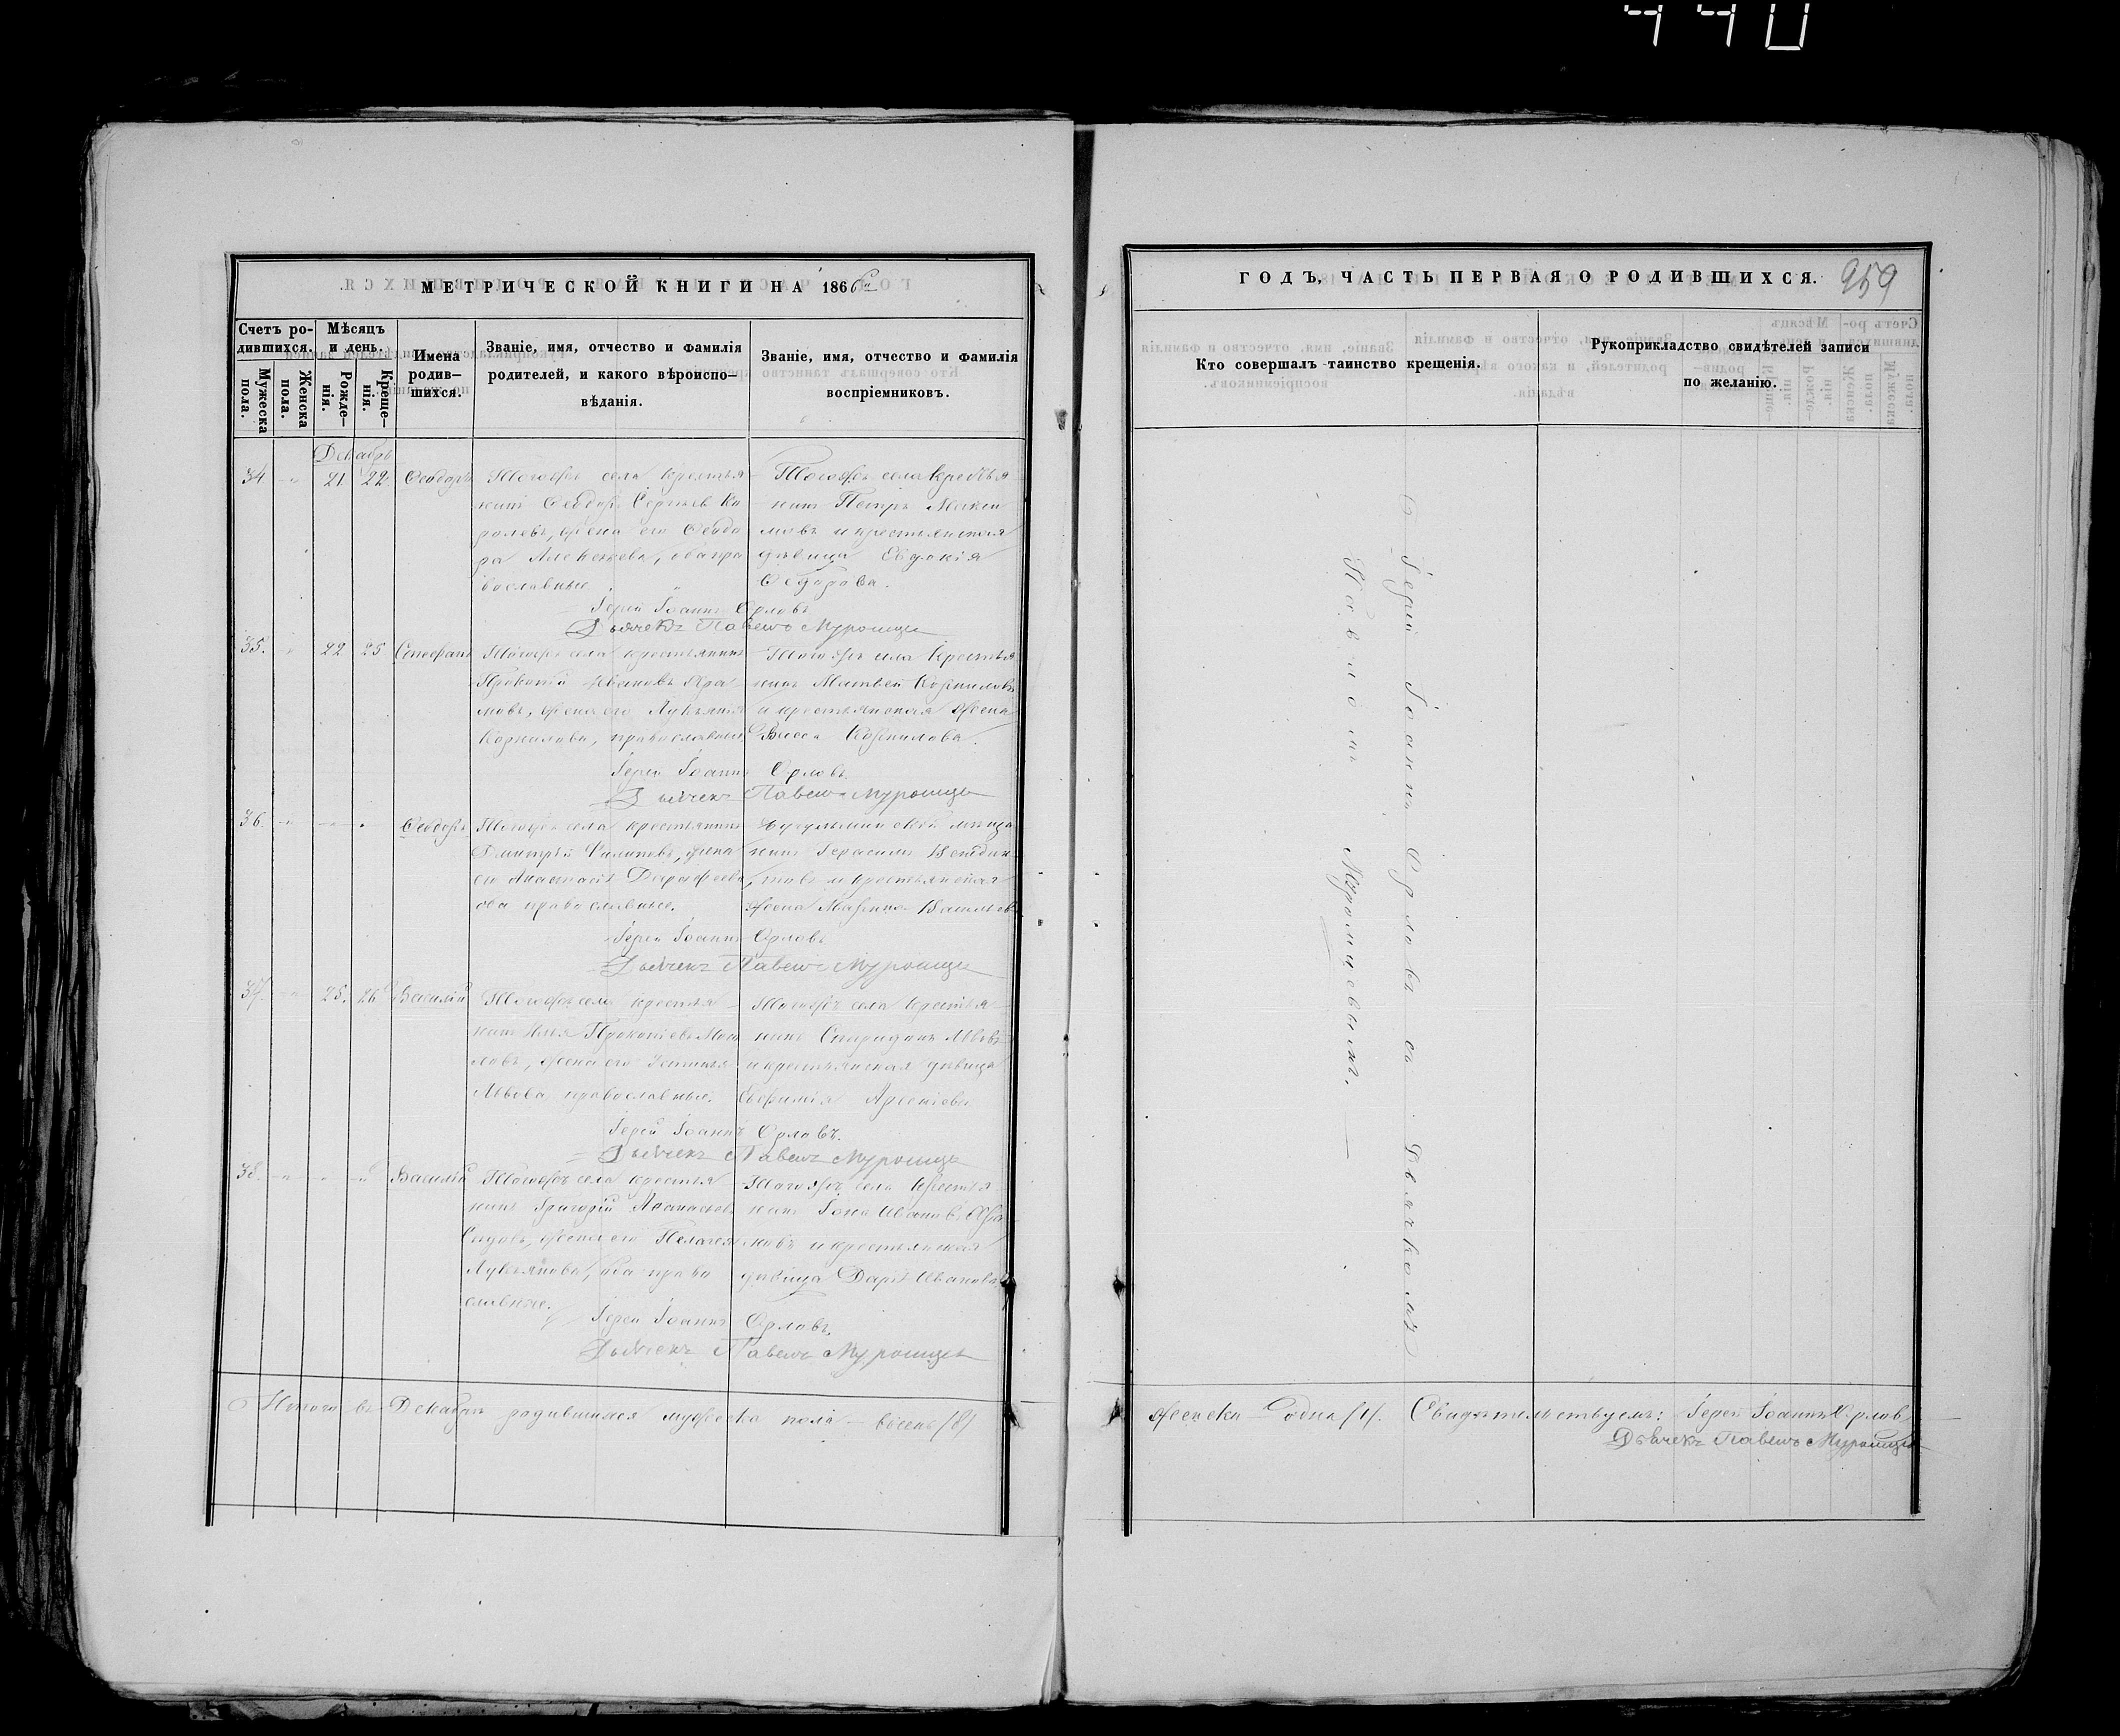 440
МЕТРИЧЕСКОЙ КНИГИ НА 1866й
Счетъ ро-
дившихся.
Мѣсяцъ
и день.
Мужеска
пола.
Женска
пола.
Рожде-
нія.
Креще-
нія.
Имена
родив-
шихся.
Званіе, имя, отчество и фамилія
родителей, и какого вѣроиспо-
вѣданія.
Званіе, имя, отчество и фамилія
воспріемниковъ.
Декабрь
34 " 21 22 Ѳеодоръ
Тогожъ села крестья
нинъ Ѳеодоръ Сергѣевъ Ко
ролевъ, жена его Ѳеодо
ра Алексѣева, оба пра
вославные.
Тогожъ села крестья
нинъ Петръ Макси
мовъ и крестьянская
дѣвица Евдокія
Ѳедорова.
Іерей Іоаннъ Орловъ
Дьячекъ Павелъ Муромцевъ
35. " 22 25
Тогожъ села крестьянинъ
Прокопій Ивановъ
мовъ, жена его Лукѣянія
Корнилова, православные.
Тогожъ села крестья
нинъ Матвей Корниловъ
и крестьянская жена
Васса Корнилова.
Іерей Іоаннъ Орловъ
Дьячекъ Павелъ Муромцевъ
36. " " " Ѳеодоръ
Тогожъ села крестьянинъ
Дмитрій Филиповъ, жена
его Анастасія Дорофеева,
оба православные.
Бугульминскій мѣща
нинъ Герасимъ
и крестьянская
жена Марина Васильева
Іерей Іоаннъ Орловъ
Дьячекъ Павелъ Муромцевъ
37. " 25. 26 Василій
Тогожъ села крестья
нинъ Илья Прокопіевъ
ловъ, жена его Устинья
Львова православные.
Тогожъ села крестья
нинъ Спиридонъ Львовъ
и крестьянская дѣвица
Евфимія Арсеніева
Іерей Іоаннъ Орловъ.
Дьячекъ Павелъ Муромцевъ
38. " " " Василій
Тогожъ села крестья
нинъ Григорій Афанасьевъ
жена его Пелагея
Лукьянова, оба право
славные.
Тогожъ села крестья
нинъ Іона Ивановъ
мовъ и крестьянская
дѣвица Дарья Иванова
Іерей Іоаннъ Орловъ.
Дьячекъ Павелъ Муромцевъ
Итого въ Декабрѣ родившихся мужеска пола — восемь (8)
ГОДЪ, ЧАСТЬ ПЕРВАЯ О РОДИВШИХСЯ.
959
Кто совершалъ таинство крещенія.
Рукоприкладство свидѣтелей записи
по желанію.
Іерей Іоаннъ Орловъ съ Дьячкомъ
Павломъ Муромцевымъ.
женска — одна (1). Свидѣтельствуемъ: Іерей Іоаннъ Орловъ
Дьячекъ Павелъ Муромцевъ